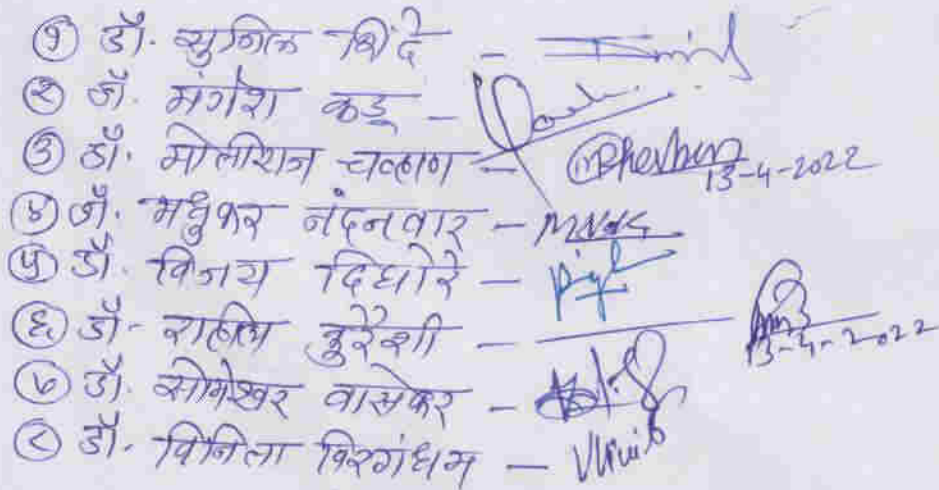 १ डॉ. सुनिल शिंदे -
२ डॉ. मंगेश कडू -
३ डॉ. मोतीराज चव्हाण - 13-4-2022
४ डॉ. मधुकर नंदनवार -
५ डॉ. विजय दिघोरे -
६ डॉ. कुरैशी - 13-4-2022
७ डॉ. सोमेश्वर वासेकर -
८ डॉ. विनिता विरगंधम -